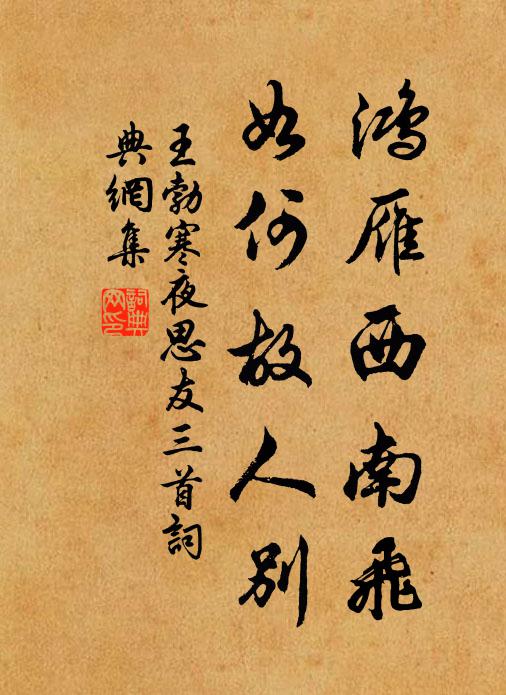 鴻雁西南飛
如何故人別
王勃寒夜思友三首詞
典網集
詞典網印